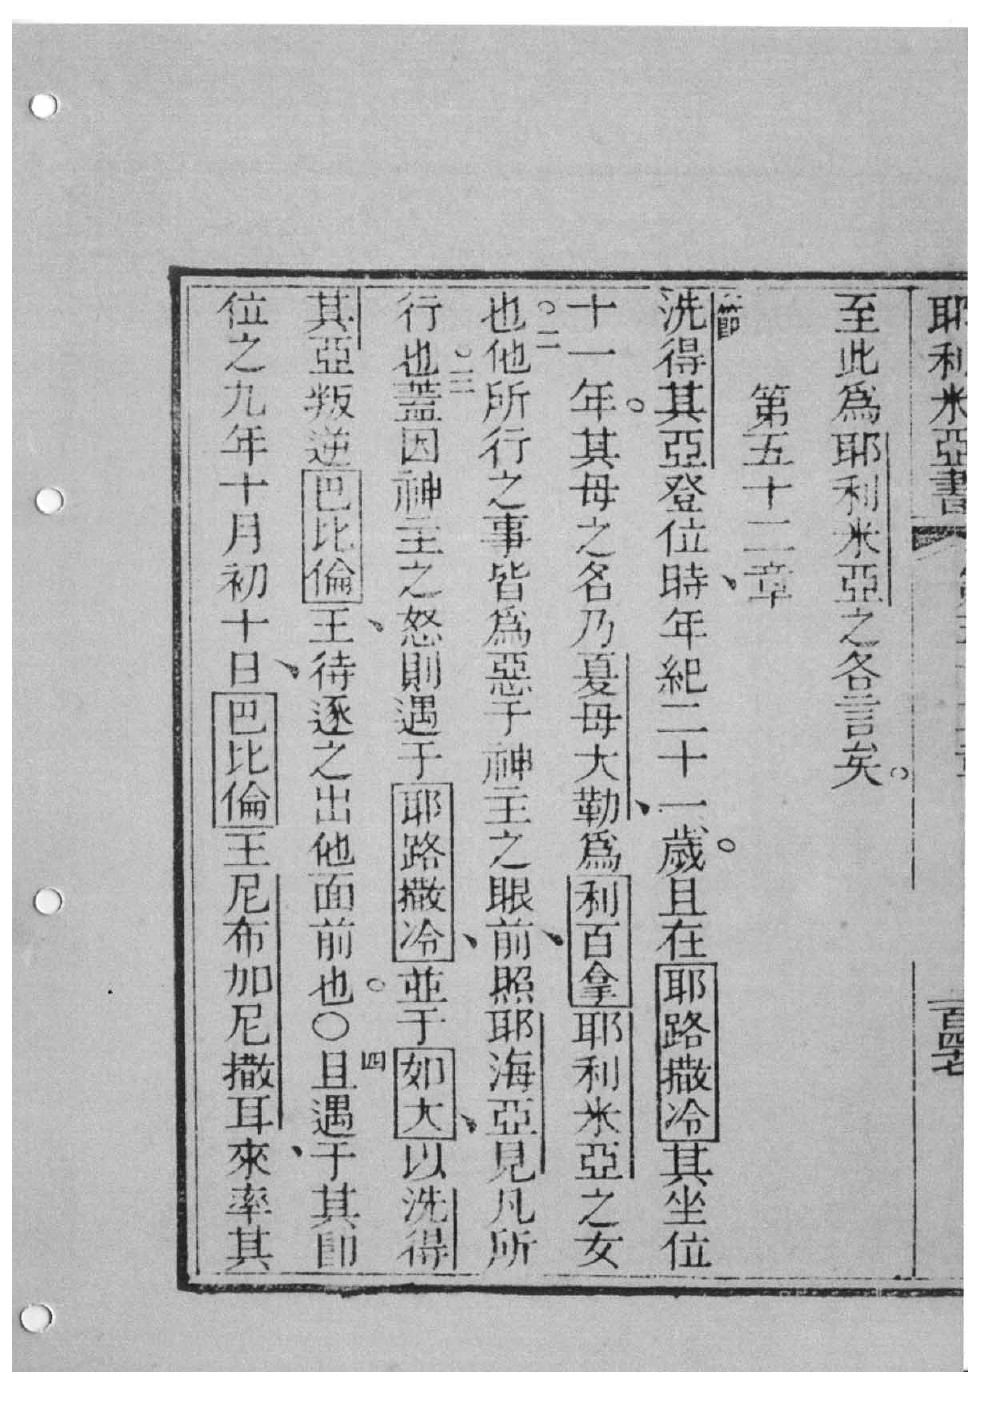 耶利米亞書
百四七
至此爲耶利米亞之各言矣。
第五十二章
節洗得其亞登位時、年紀二十一歲。且在耶路撒冷其坐位
十一年。其母之名乃夏母大勒、爲利百拿耶利米亞之女
也。二他所行之事皆爲惡于神主之眼前、照耶海亞見凡所
行也。三蓋因神主之怒則遇于耶路撒冷、並于如大、以洗得
其亞叛逆巴比倫王、待逐之出他面前也。〇四且遇于其卽
位之九年十月初十日、巴比倫王尼布加尼撒耳來、率其